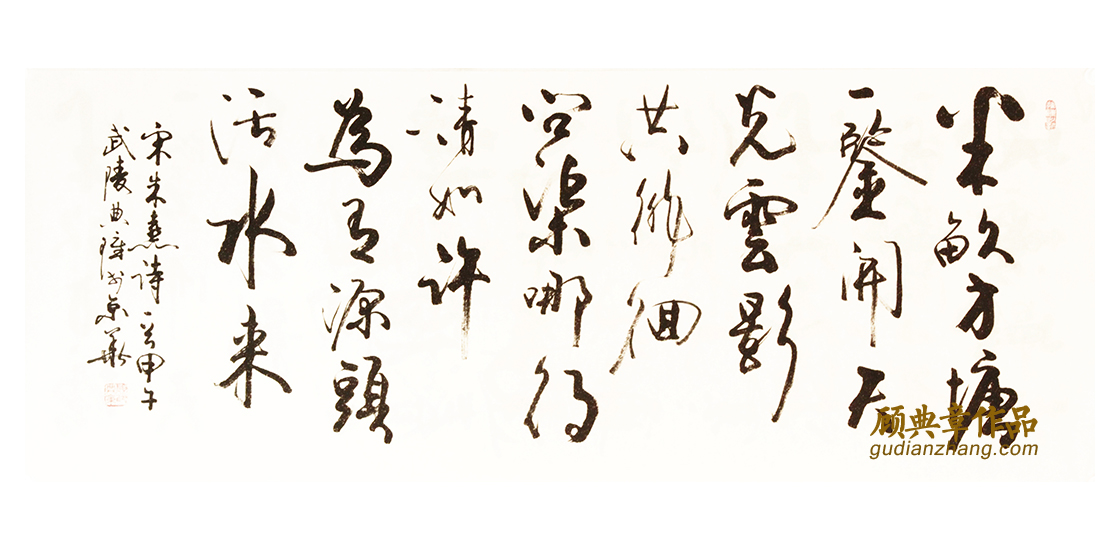 半畝方塘
一鑒開天
光雲影
共徘徊
问渠哪得
清如许
為有源頭
活水来
宋朱熹诗一首甲午
武陵典璋书京華
顾典章作品
gudianzhang.com